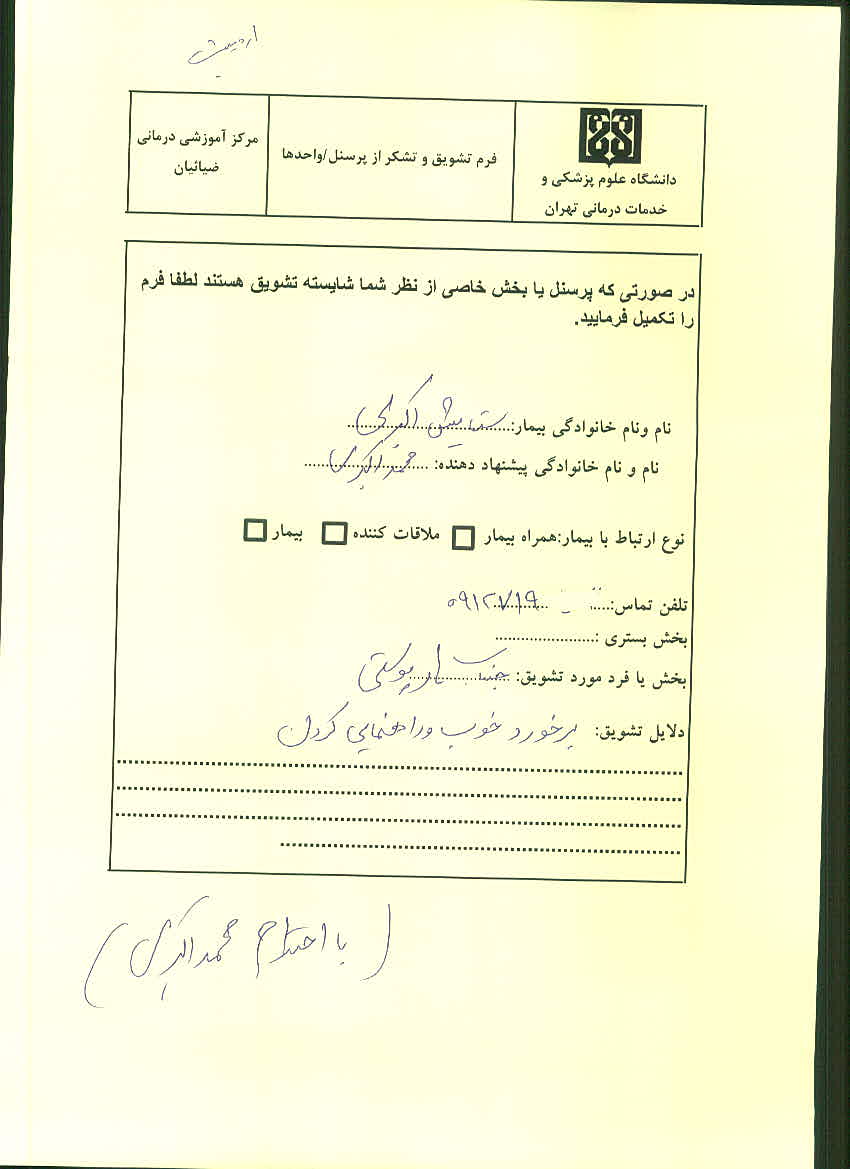 اردیبهشت
دانشگاه علوم پزشکی و
خدمات درمانی تهران
فرم تشویق و تشکر از پرسنل/واحدها
مرکز آموزشی درمانی
ضیائیان
در صورتی که پرسنل یا بخش خاصی از نظر شما شایسته تشویق هستند لطفا فرم
را تکمیل فرمایید.
نام ونام خانوادگی بیمار: ستایش اکبری
نام و نام خانوادگی پیشنهاد دهنده: محمد اکبری
نوع ارتباط با بیمار:همراه بیمار □ ملاقات کننده □ بیمار □
تلفن تماس: ۰۹۱۲۷۱۹
بخش بستری :
بخش یا فرد مورد تشویق: جناب
دلایل تشویق: برخورد خوب وراهنمایی کردن
(با احترام محمد اکبری)